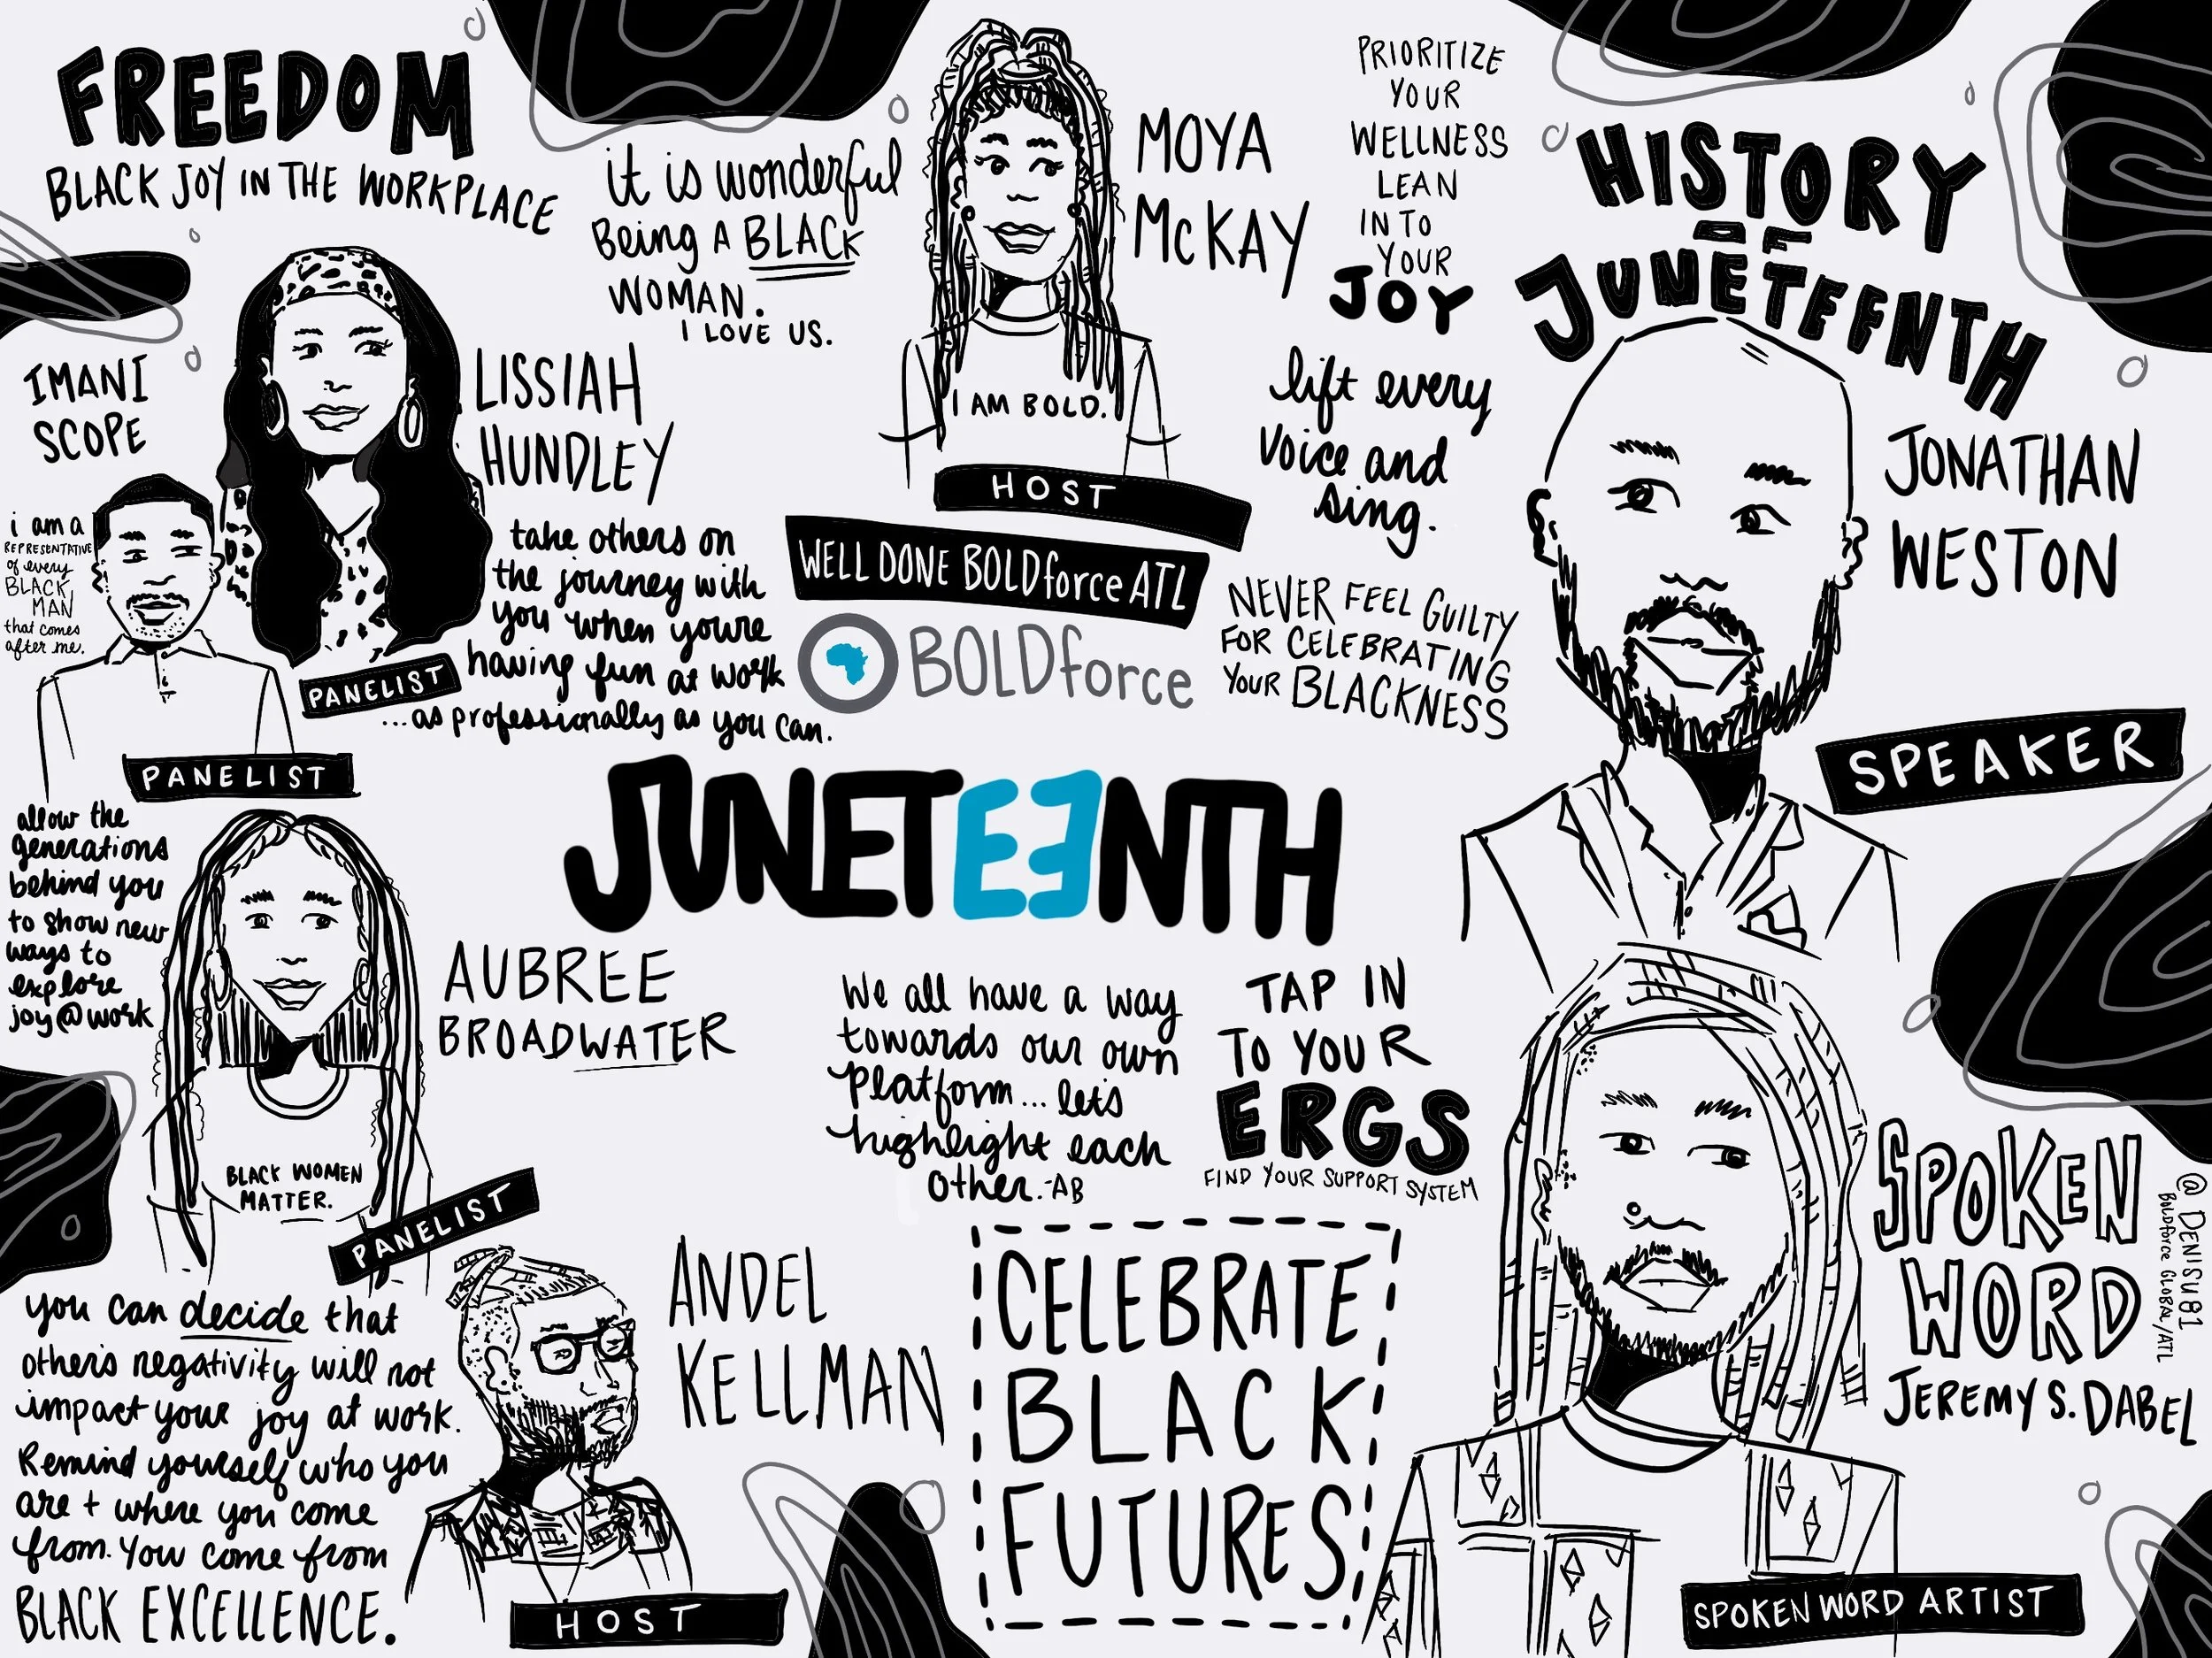 FREEDOM
BLACK JOY IN THE WORKPLACE
IMANI
SCOPE
i am a
REPRESENTATIVE
of every
BLACK
MAN
that comes
after me.
PANELIST
LISSIAH
HUNDLEY
PANELIST
take others on
the journey with
you when youre
having fun at work
...as professionally as you can.
it is wonderful
Being A BLACK
WOMAN.
I LOVE US.
MOYA
McKAY
I AM BOLD.
HOST
WELL DONE BOLDforce ATL
BOLDforce
PRIORITIZE
YOUR
WELLNESS
LEAN
INTO
YOUR
JOY
lift every
voice and
sing.
NEVER FEEL GUILTY
FOR CELEBRATING
YOUR BLACKNESS
HISTORY
OF
JUNETEENTH
JONATHAN
WESTON
SPEAKER
JUNETEENTH
allow the
generations
behind you
to show new
ways to
explore
joy@work
AUBREE
BROADWATER
BLACK WOMEN
MATTER.
PANELIST
We all have a way
towards our own
platform... let's
highlight each
other.-AB
TAP IN
TO YOUR
ERGS
FIND YOUR SUPPORT SYSTEM
you can decide that
others negativity will not
impact your joy at work.
Remind yourself who you
are + where you come
from. You come from
BLACK EXCELLENCE.
ANDEL
KELLMAN
HOST
CELEBRATE
BLACK
FUTURES
SPOKEN
WORD
JEREMY S. DABEL
SPOKEN WORD ARTIST
@DENISU81
BOLDforce GLOBAL/ATL